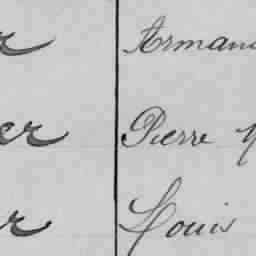 r Arman
er Pierre
r Louis